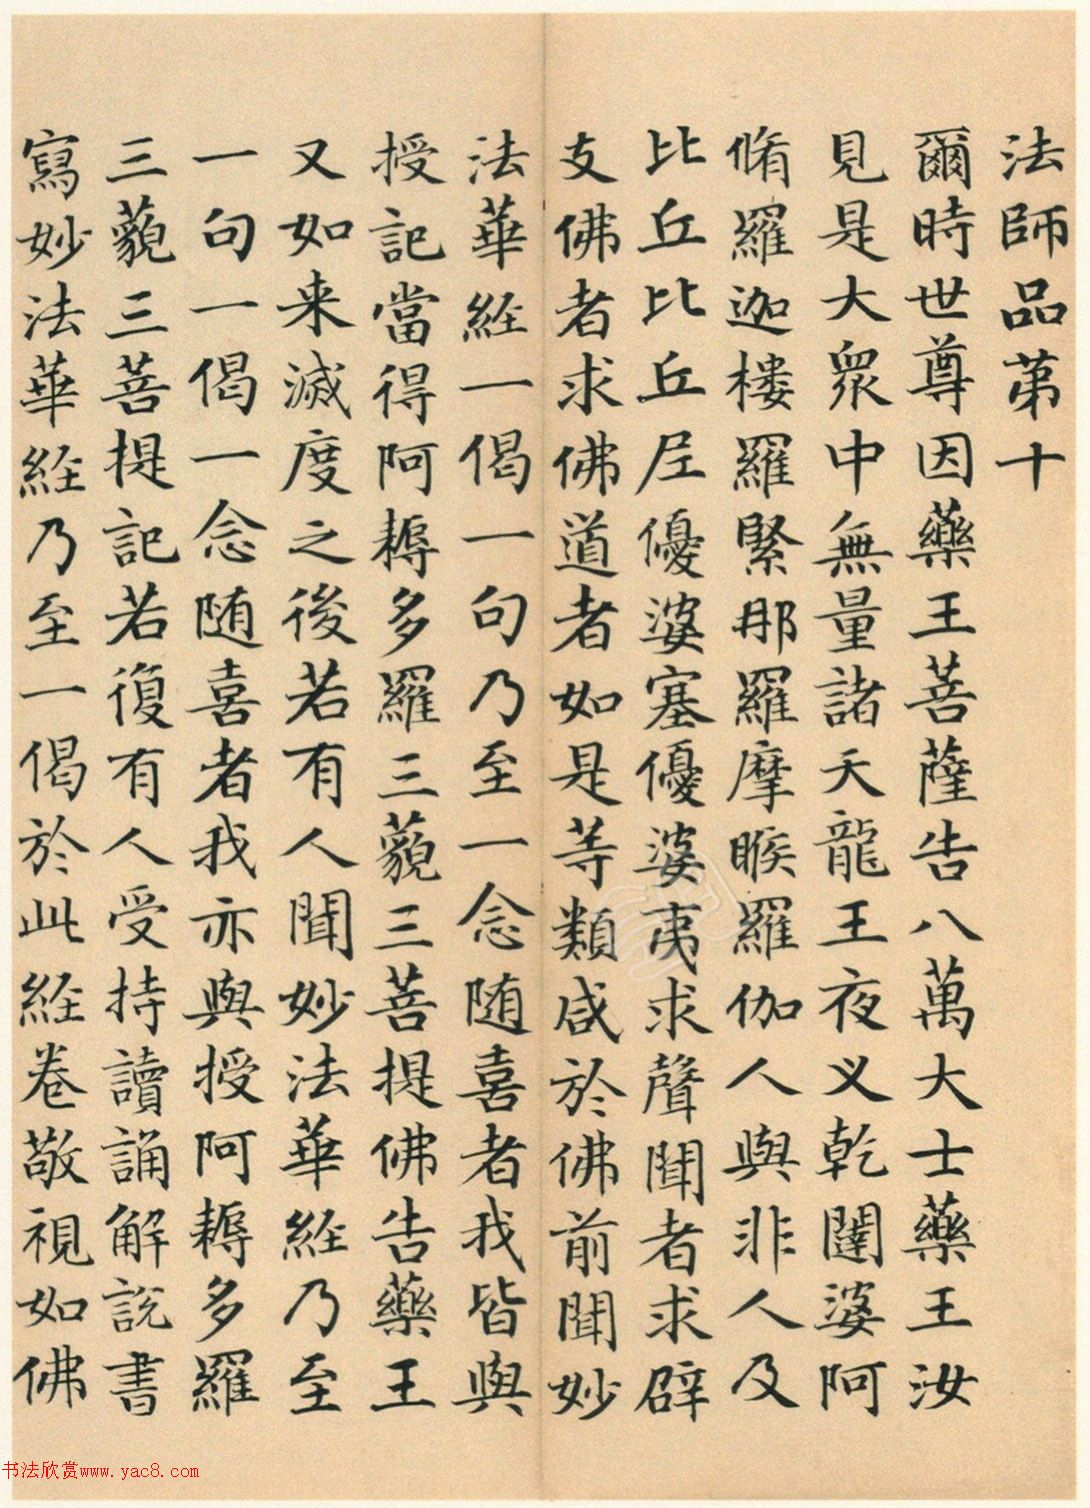 法師品第十
爾時世尊因藥王菩薩告八萬大士藥王汝
見是大眾中無量諸天龍王夜义乾闥婆阿
脩羅迦樓羅緊那羅摩睺羅伽人與非人及
比丘比丘尼優婆塞優婆夷求聲聞者求辟
支佛者求佛道者如是等類咸於佛前聞妙
法華經一偈一句乃至一念随喜者我皆與
授記當得阿耨多羅三藐三菩提佛告藥王
又如来滅度之後若有人聞妙法華經乃至
一句一偈一念随喜者我亦與授阿耨多羅
三藐三菩提記若復有人受持讀誦解說書
寫妙法華經乃至一偈於此經卷敬視如佛
书法欣赏www.yac8.com